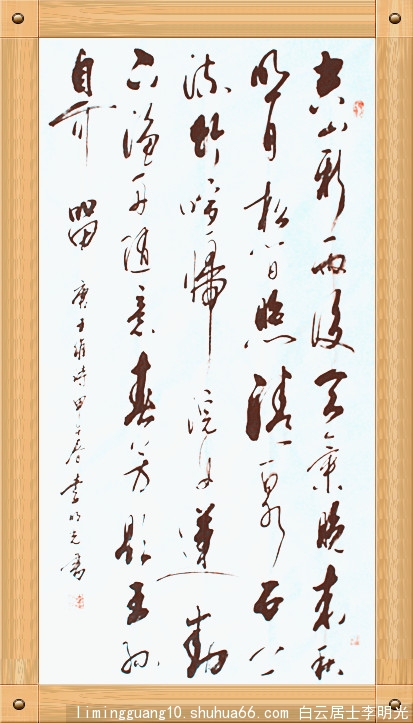 空山新雨後天氣晚來秋
明月松間照清泉石上
流竹喧歸浣女蓮動
下漁舟隨意春芳歇王孫
自可留
唐王維詩甲午春李明光書
limingguang10.shuhua66.com 白云居士李明光